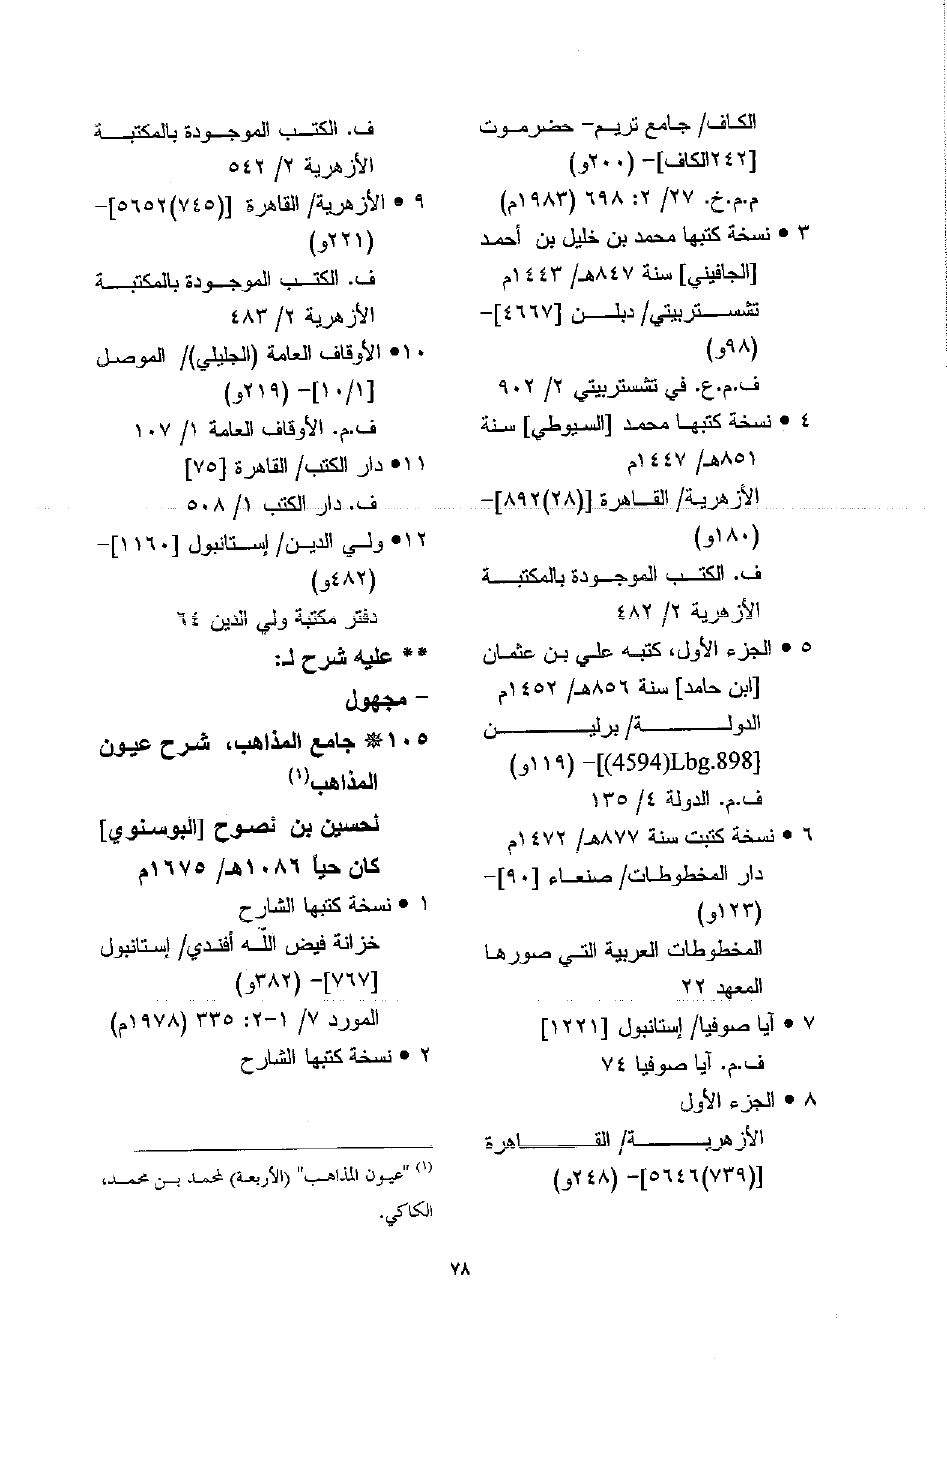 الكاف/ جامع تريم- حضرموت
[٢٤٢الكاف]- (٢٠٠و)
م.م.خ. ٢٧/ ٢: ٦٩٨ (١٩٨٣م)
٣ • نسخة كتبها محمد بن خليل بن أحمد
[الجافيني] سنة ٨٤٧هـ/ ١٤٤٣م
تشستربيتي/ دبلن [٤٦٦٧]-
(٩٨و)
ف.م.ع. في تشستربيتي ٢/ ٩٠٢
٤ • نسخة كتبها محمد [السيوطي] سنة
٨٥١هـ/ ١٤٤٧م
الأزهرية/ القاهرة [(٢٨)٨٩٢]-
(١٨٠و)
ف. الكتب الموجودة بالمكتبة
الأزهرية ٢/ ٤٨٢
٥ • الجزء الأول، كتبه علي بن عثمان
[ابن حامد] سنة ٨٥٦هـ/ ١٤٥٢م
الدولة/ برلين
[(4594)Lbg.898]- (١١٩و)
ف.م. الدولة ٤/ ١٣٥
٦ • نسخة كتبت سنة ٨٧٧هـ/ ١٤٧٢م
دار المخطوطات/ صنعاء [٩٠]-
(١٢٣و)
المخطوطات العربية التي صورها
المعهد ٢٢
٧ • آيا صوفيا/ إستانبول [١٢٢١]
ف.م. آيا صوفيا ٧٤
٨ • الجزء الأول
الأزهرية/ القاهرة
[(٧٣٩)٥٦٤٦]- (٢٤٨و)
ف. الكتب الموجودة بالمكتبة
الأزهرية ٢/ ٥٤٢
٩ • الأزهرية/ القاهرة [(٧٤٥)٥٦٥٢]-
(٢٢١و)
ف. الكتب الموجودة بالمكتبة
الأزهرية ٢/ ٤٨٣
١٠• الأوقاف العامة (الجليلي)/ الموصل
[١٠/١]- (٢١٩و)
ف.م. الأوقاف العامة ١/ ١٠٧
١١• دار الكتب/ القاهرة [٧٥]
ف. دار الكتب ١/ ٥٠٨
١٢• ولي الدين/ إستانبول [١١٦٠]-
(٤٨٢و)
دفتر مكتبة ولي الدين ٦٤
** عليه شرح لـ:
- مجهول
١٠٥* جامع المذاهب، شرح عيون
المذاهب(١)
لحسين بن نصوح [البوسنوي]
كان حياً ١٠٨٦هـ/ ١٦٧٥م
١ • نسخة كتبها الشارح
خزانة فيض الله أفندي/ إستانبول
[٧٦٧]- (٣٨٢و)
المورد ٧/ ١-٢: ٣٣٥ (١٩٧٨م)
٢ • نسخة كتبها الشارح
(١) "عيون المذاهب" (الأربعة) لمحمد بن محمد،
الكاكي.
٧٨